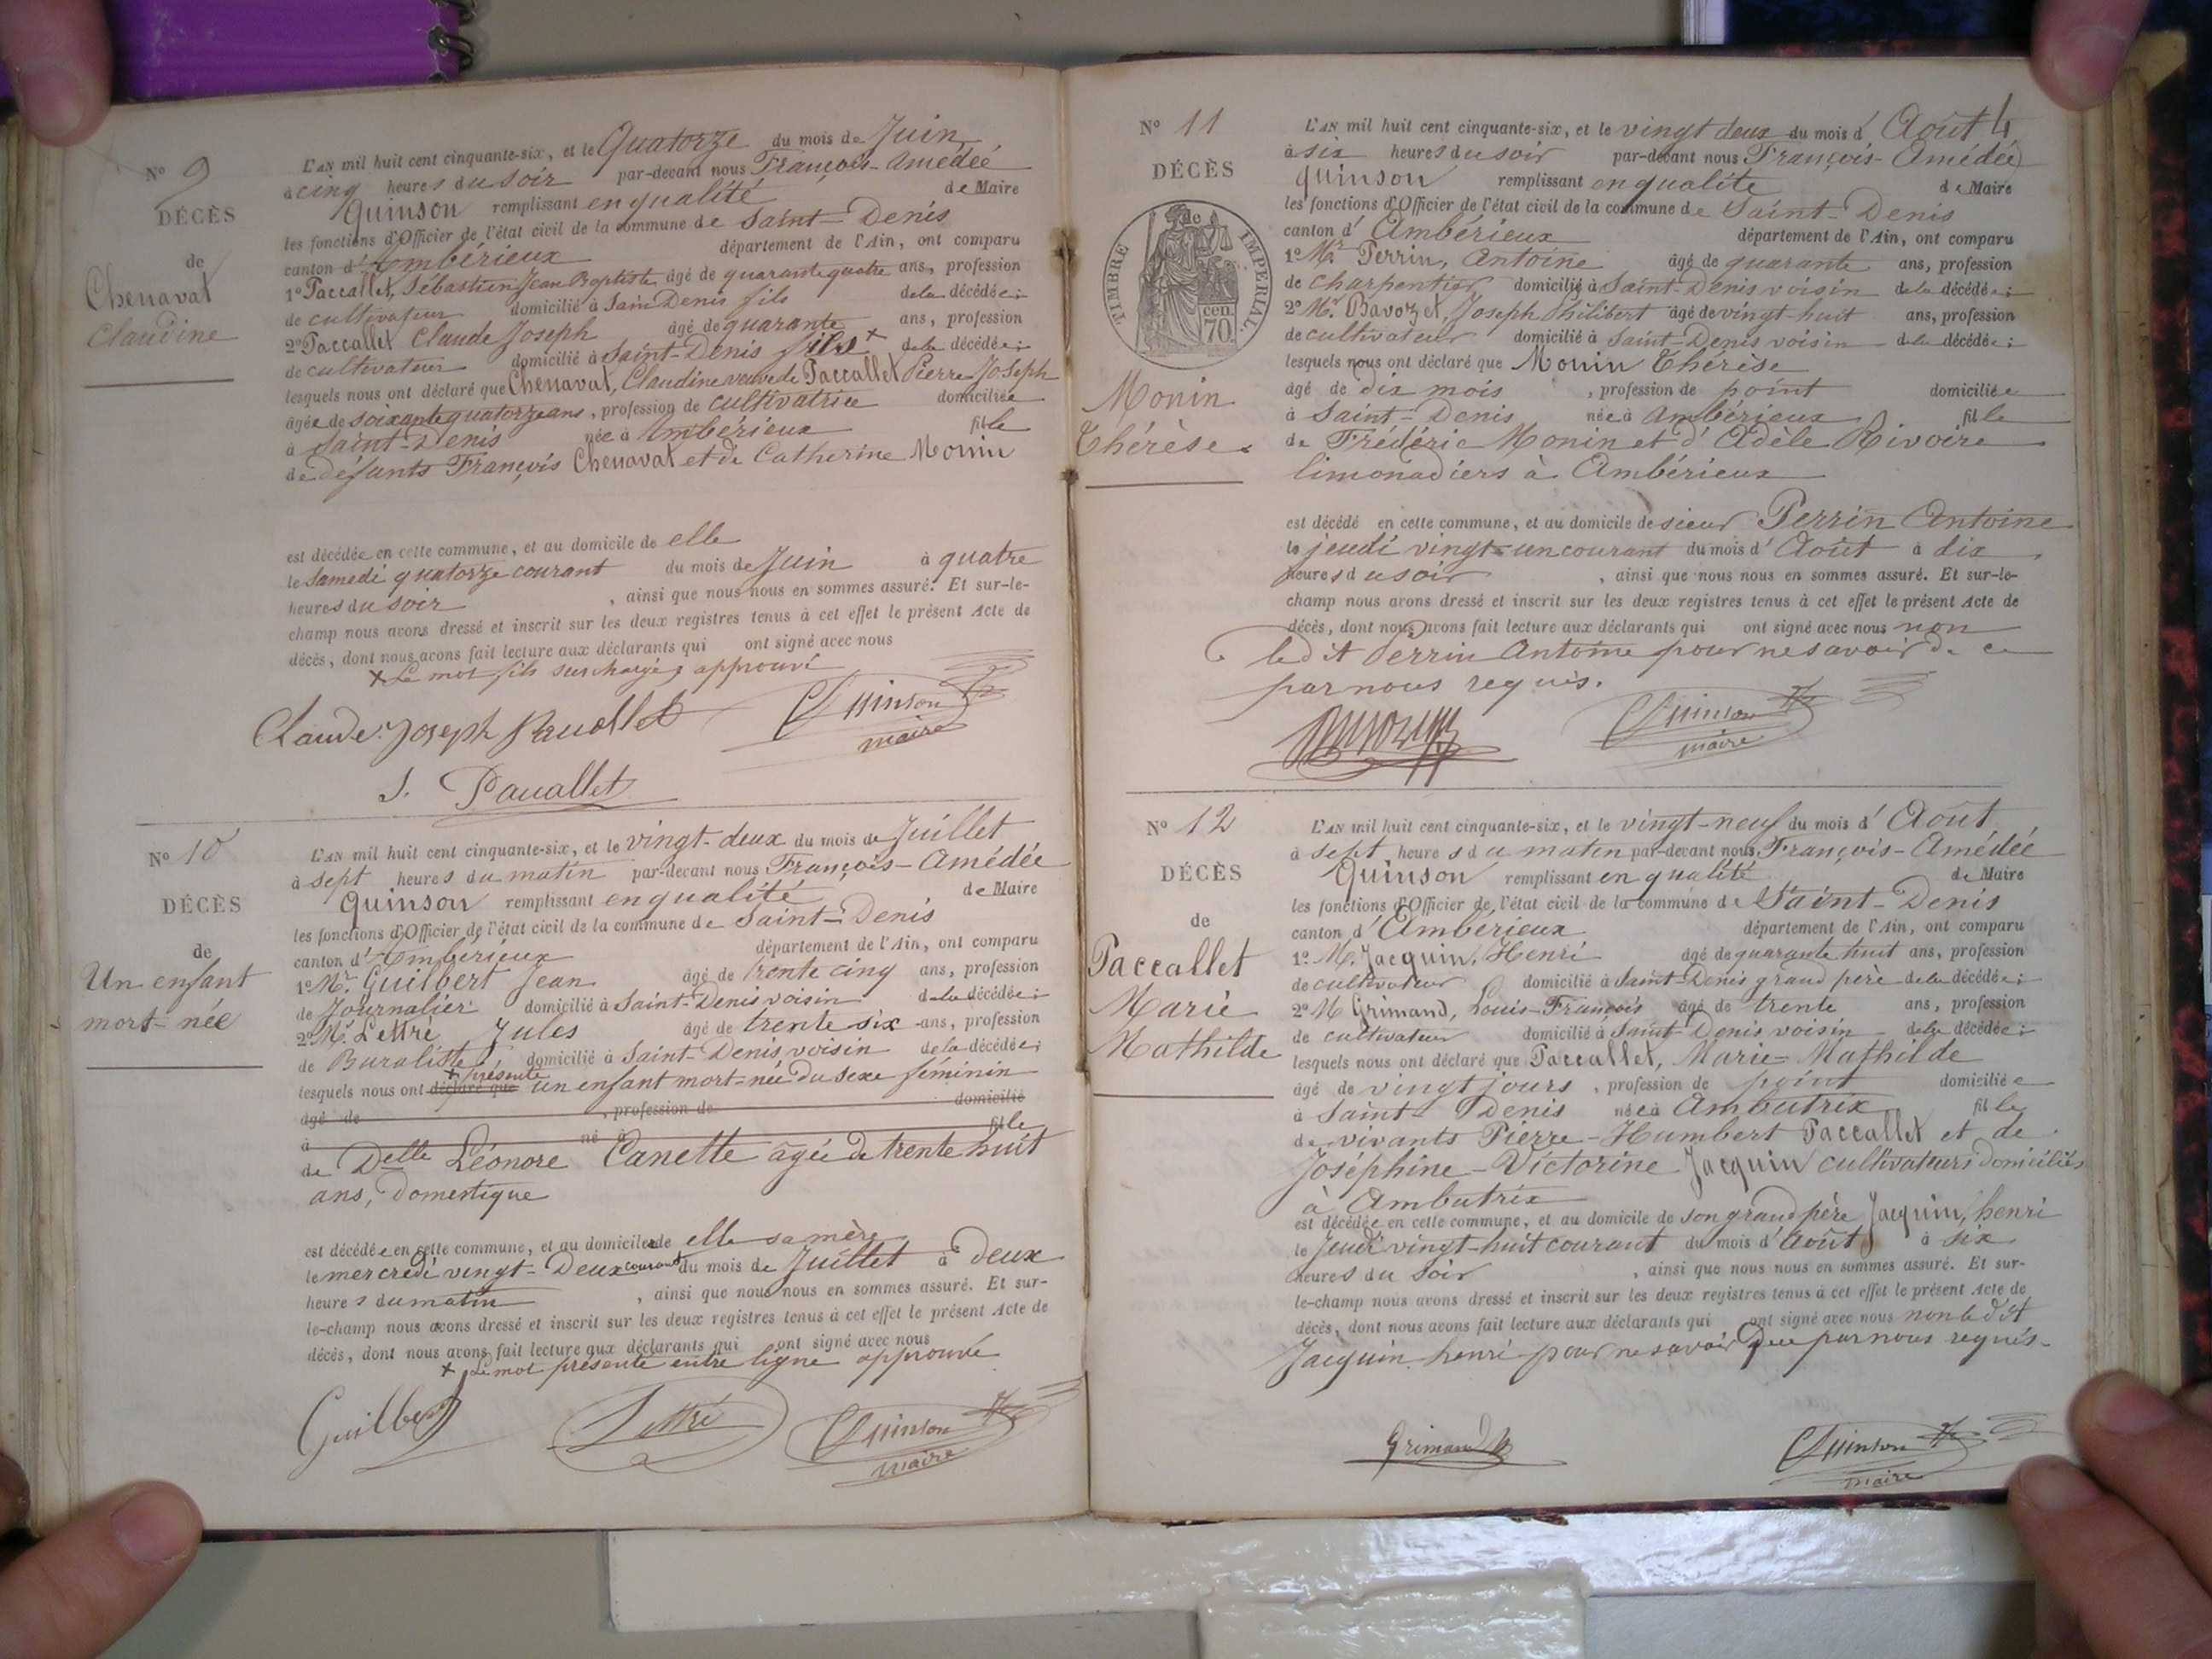 Nº 9
DÉCÈS
de
Chenavat
Claudine
L'AN mil huit cent cinquante-six, et le Quatorze du mois de Juin
à cinq heures du soir par-devant nous François-Amédée
Quinson remplissant en qualité de Maire
les fonctions d'Officier de l'état civil de la commune de Saint-Denis
canton d'Ambérieux département de l'Ain, ont comparu
1º Paccallet, Sébastien Jean Baptiste âgé de quarante quatre ans, profession
de cultivateur domicilié à Saint Denis fils de la décédée;
2º Paccallet Claude Joseph âgé de quarante ans, profession
de cultivateur domicilié à Saint-Denis fils + de la décédée;
lesquels nous ont déclaré que Chenavat, Claudine veuve de Paccallet Pierre Joseph
âgée de soixante quatorze ans, profession de cultivatrice domiciliée
à Saint-Denis née à Ambérieux fille
de défunts François Chenavat et de Catherine Monin
est décédée en cette commune, et au domicile de elle
le Samedi quatorze courant du mois de Juin à quatre
heures du soir, ainsi que nous nous en sommes assuré. Et sur-le-
champ nous avons dressé et inscrit sur les deux registres tenus à cet effet le présent Acte de
décès, dont nous avons fait lecture aux déclarants qui ont signé avec nous
+ Le mot fils surchargé approuvé
Claude Joseph Pacallet Quinson
maire
S. Pacallet
Nº 10
DÉCÈS
de
Un enfant
mort-née
L'AN mil huit cent cinquante-six, et le vingt-deux du mois de Juillet
à sept heures du matin par-devant nous François-Amédée
Quinson remplissant en qualité de Maire
les fonctions d'Officier de l'état civil de la commune de Saint-Denis
canton d'Ambérieux département de l'Ain, ont comparu
1º Mr. Guilbert Jean âgé de trente cinq ans, profession
de Journalier domicilié à Saint-Denis voisin de la décédée;
2º Mr. Lettré Jules âgé de trente six ans, profession
de Buraliste, domicilié à Saint-Denis voisin de la décédée;
+ présenté
lesquels nous ont déclaré que un enfant mort-née du sexe féminin
âgé de , profession de domicilié
à né à fille
de Delle Léonore Canette âgée de trente huit
ans, Domestique
est décédée en cette commune, et au domicile de elle sa mère
le mercredi vingt-Deux courant du mois de Juillet à deux
heures du matin, ainsi que nous nous en sommes assuré. Et sur-
le-champ nous avons dressé et inscrit sur les deux registres tenus à cet effet le présent Acte de
décès, dont nous avons fait lecture aux déclarants qui ont signé avec nous
+ Le mot présenté entre ligne approuvé
Guilbert Lettré Quinson
maire
4
Nº 11
DÉCÈS
de
TIMBRE IMPERIAL.
70 cen.
Monin
Thérèse
L'AN mil huit cent cinquante-six, et le vingt deux du mois d'Août
à six heures du soir par-devant nous François-Amédée
Quinson remplissant en qualité de Maire
les fonctions d'Officier de l'état civil de la commune de Saint-Denis
canton d'Ambérieux département de l'Ain, ont comparu
1º Mr Perrin, Antoine âgé de quarante ans, profession
de charpentier domicilié à Saint-Denis voisin de la décédée;
2º Mr. Bavozet, Joseph Philibert âgé de vingt huit ans, profession
de cultivateur domicilié à Saint-Denis voisin de la décédée;
lesquels nous ont déclaré que Monin Thérèse
âgé de dix mois, profession de point domiciliée
à Saint-Denis née à Ambérieux fille
de Frédéric Monin et d'Adèle Rivoire
limonadiers à Ambérieux
est décédé en cette commune, et au domicile de sieur Perrin Antoine
le jeudi vingt-un courant du mois d'Août à dix
heures du soir, ainsi que nous nous en sommes assuré. Et sur-le-
champ nous avons dressé et inscrit sur les deux registres tenus à cet effet le présent Acte de
décès, dont nous avons fait lecture aux déclarants qui ont signé avec nous non
le dit Perrin Antoine pour ne savoir de ce
par nous requis.
Quinson
maire
Nº 12
DÉCÈS
de
Paccallet
Marie
Mathilde
L'AN mil huit cent cinquante-six, et le vingt-neuf du mois d'Août
à sept heures du matin par-devant nous François-Amédée
Quinson remplissant en qualité de Maire
les fonctions d'Officier de l'état civil de la commune de Saint-Denis
canton d'Ambérieux département de l'Ain, ont comparu
1º M. Jacquin, Henri âgé de quarante huit ans, profession
de cultivateur domicilié à Saint-Denis grand père de la décédée;
2º M Grimand, Louis-François âgé de trente ans, profession
de cultivateur domicilié à Saint-Denis voisin de la décédée;
lesquels nous ont déclaré que Paccallet, Marie-Mathilde
âgé de vingt jours, profession de point domiciliée
à Saint-Denis née à Ambutrix fille
de vivants Pierre-Humbert Paccallet et de
Joséphine-Victorine Jacquin cultivateurs domiciliés
à Ambutrix
est décédée en cette commune, et au domicile de son grand père Jacquin, henri
le Jeudi vingt-huit courant du mois d'Août à six
heures du soir, ainsi que nous nous en sommes assuré. Et sur-
le-champ nous avons dressé et inscrit sur les deux registres tenus à cet effet le présent Acte de
décès, dont nous avons fait lecture aux déclarants qui ont signé avec nous non le dit
Jacquin henri pour ne savoir De ce par nous requis.
Grimand Quinson
maire